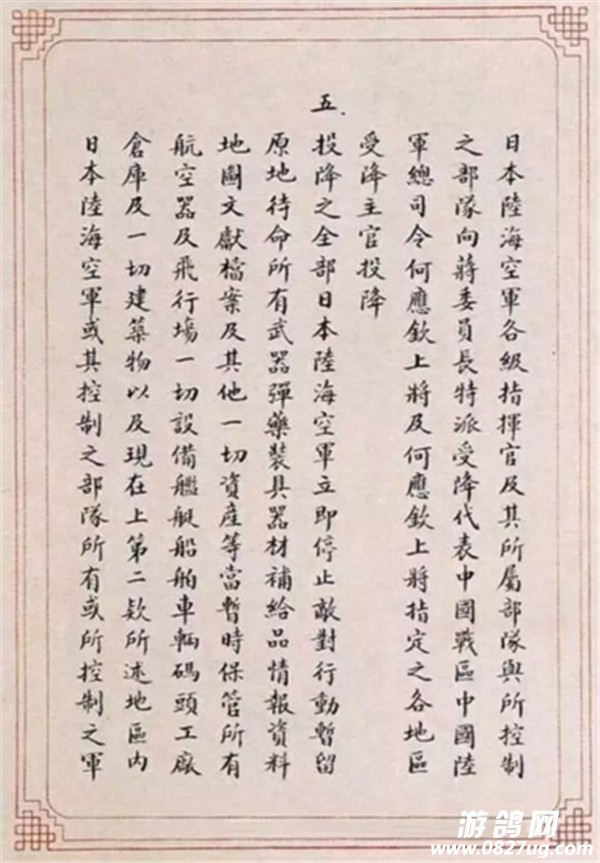 日本陸海空軍各級指揮官及其所屬部隊與所控制
之部隊向蔣委員長特派受降代表中國戰區中國陸
軍總司令何應欽上將及何應欽上將指定之各地區
受降主官投降
五.
投降之全部日本陸海空軍立即停止敵對行動暫留
原地待命所有武器彈藥裝具器材補給品情報資料
地圖文獻檔案及其他一切資產等當暫時保管所有
航空器及飛行場一切設備艦艇船舶車輛碼頭工廠
倉庫及一切建築物以及現在上第二款所述地區內
日本陸海空軍或其控制之部隊所有或所控制之軍
游鸽网
www.0827ug.com